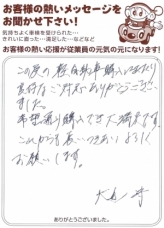 お客様の熱いメッセージを
お聞かせ下さい!
気持ちよく車検を受けられた…
きれいに直った…満足した…などなど
お客様の熱い応援が従業員の元気の元になります!
この度の軽自動車購入にあたり
良好なご対応ありがとうござい
ました。
希望通り購入できて大満足です。
これからも長いつきあいよろしく
お願いします。
ありがとうございました。